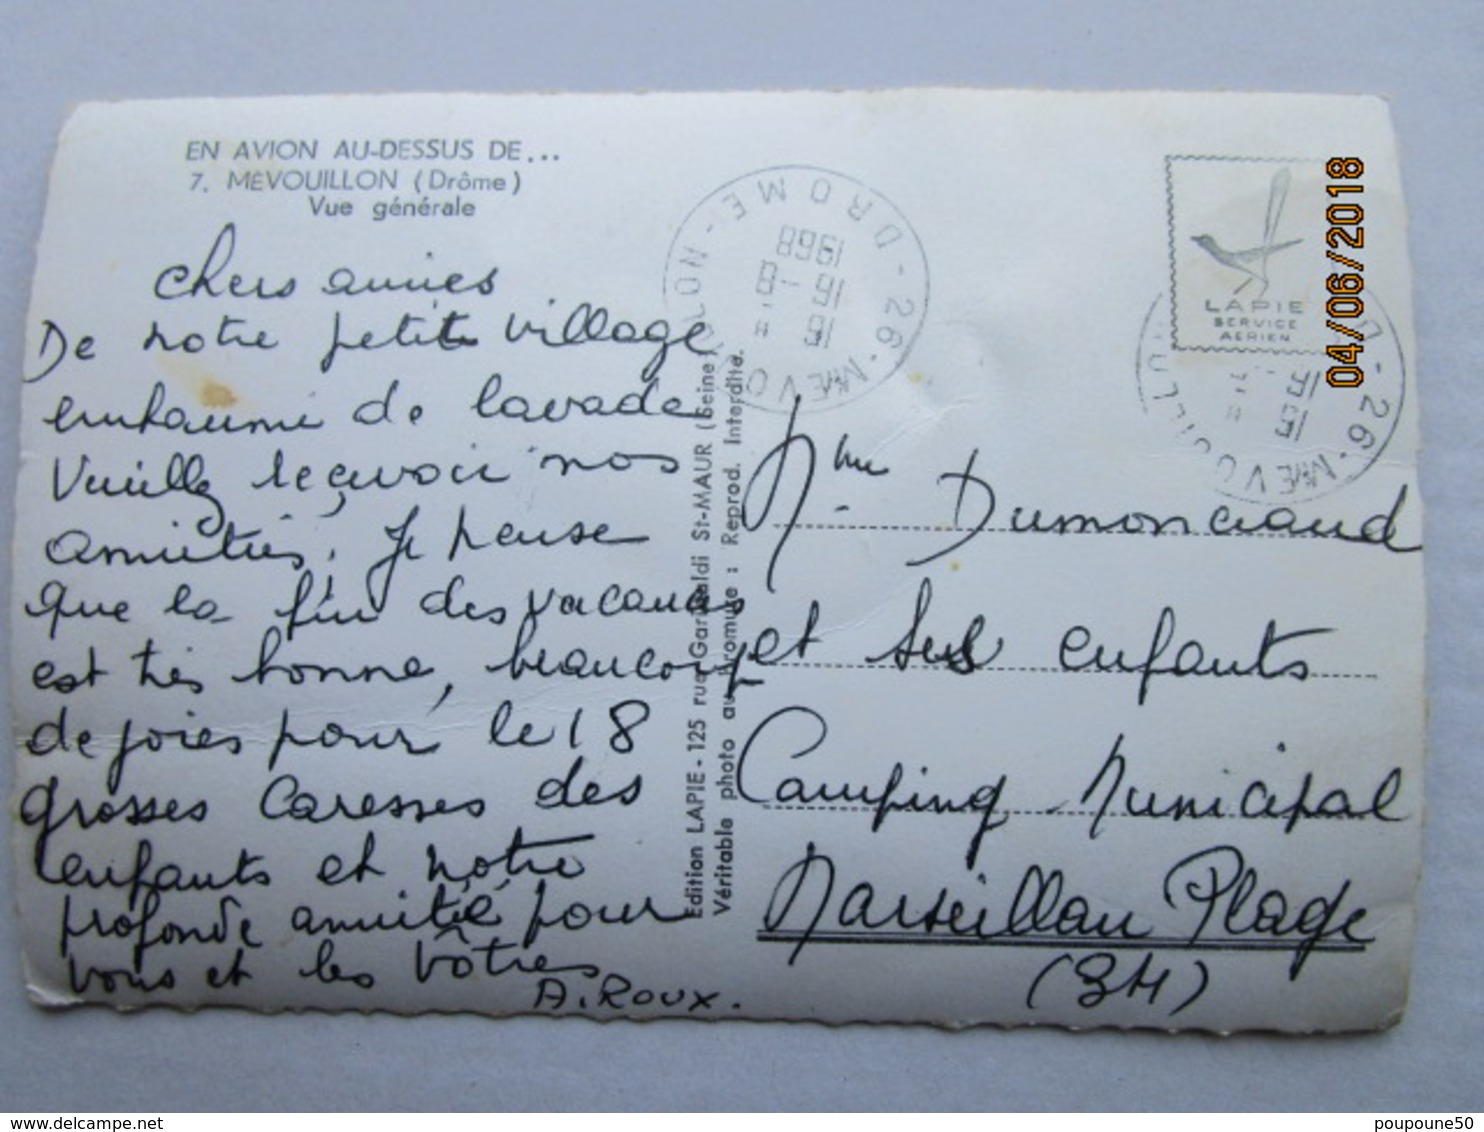 EN AVION AU-DESSUS DE...
7. MÉVOUILLON (Drôme)
Vue générale
Chers amies
De notre petit village
embaumé de lavande
Veuillez recevoir nos
amitiés. Je pense
que la fin des vacances
est très bonne, beaucoup
de joies pour le 18
grosses caresses des
enfants et notre
profonde amitié pour
vous et les vôtres
A. Roux.
Edition LAPIE - 125 rue Garibaldi St-MAUR (Seine)
Véritable photo au bromure : Reprod. Interdite.
26 - MÉVOUILLON - DROME
16 -8
1968
LAPIE
SERVICE
AERIEN
04/06/2018
Mme
et ses enfants
Camping Municipal
Marseillan Plage
(34)
poupoune50